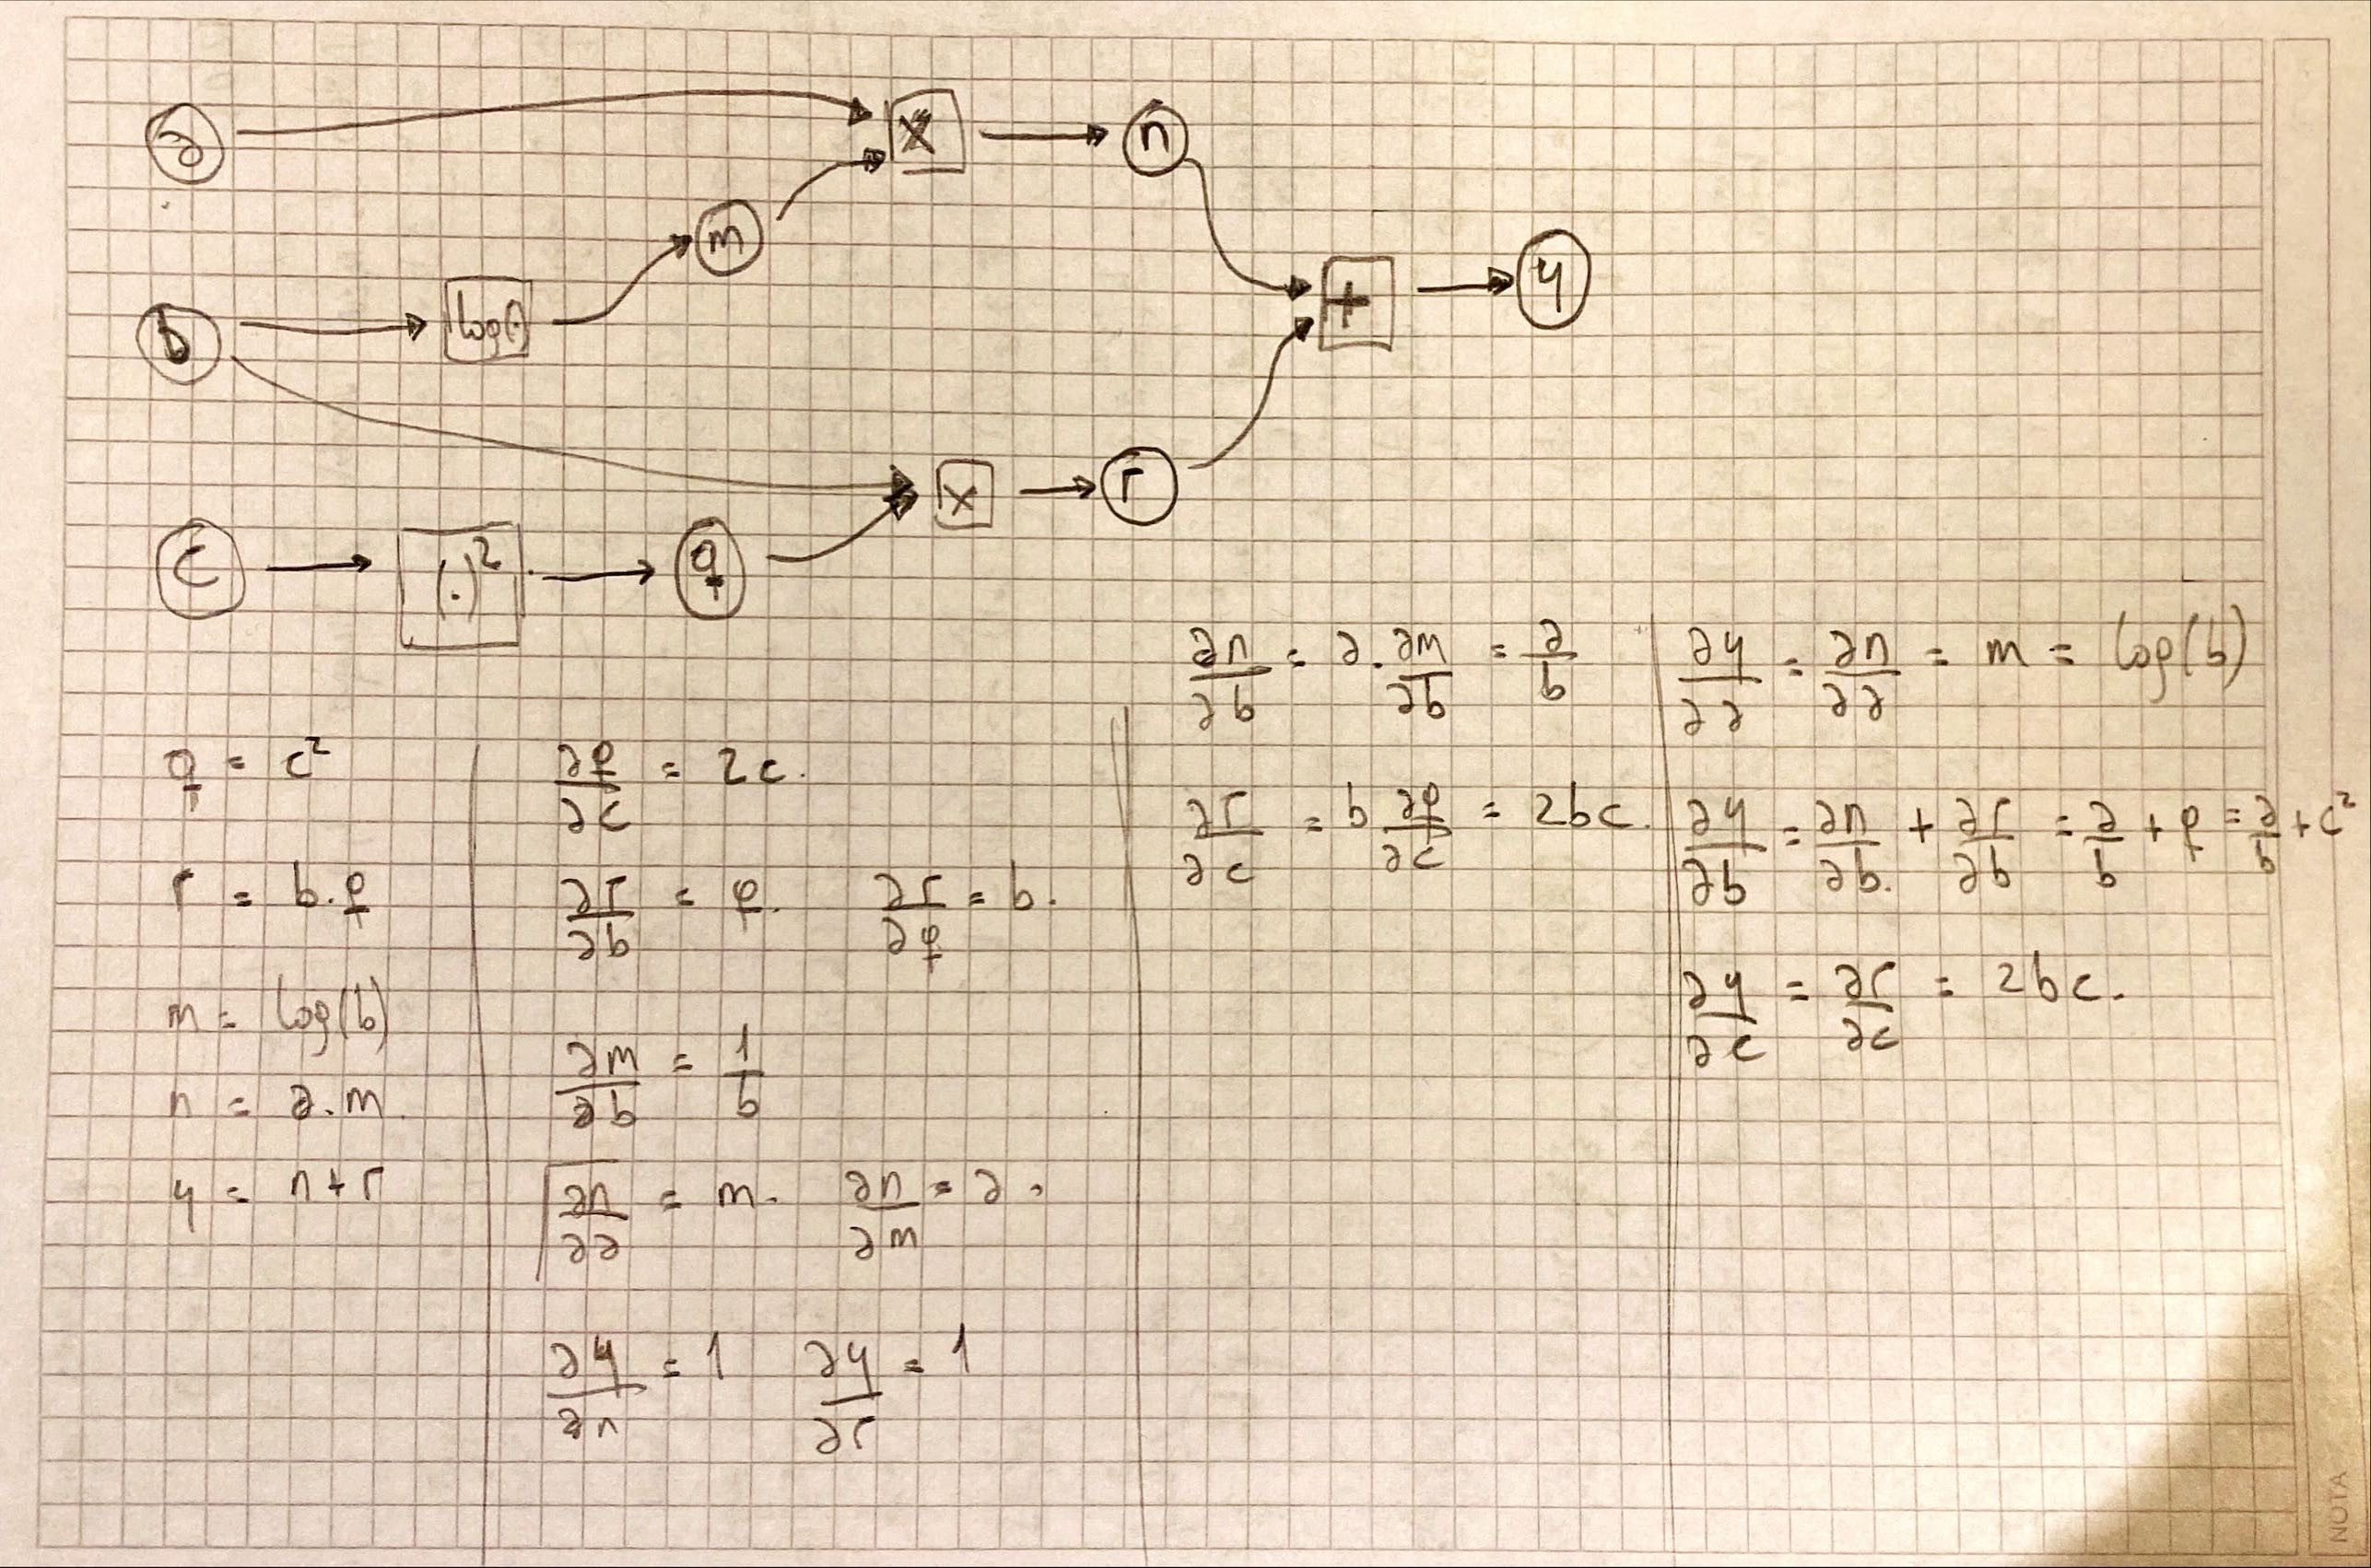 a × n
m
b log(·) + y
× r
c (·)² q
q = c²
r = b.q
m = log(b)
n = a.m.
y = n+r
∂q/∂c = 2c.
∂r/∂b = q. ∂r/∂q = b.
∂m/∂b = 1/b
∂n/∂a = m. ∂n/∂m = a.
∂y/∂n = 1 ∂y/∂r = 1
∂n/∂b = a.∂m/∂b = a/b
∂r/∂c = b ∂q/∂c = 2bc.
∂y/∂a = ∂n/∂a = m = log(b)
∂y/∂b = ∂n/∂b. + ∂r/∂b = a/b + q = a/b + c²
∂y/∂c = ∂r/∂c = 2bc.
NOTA